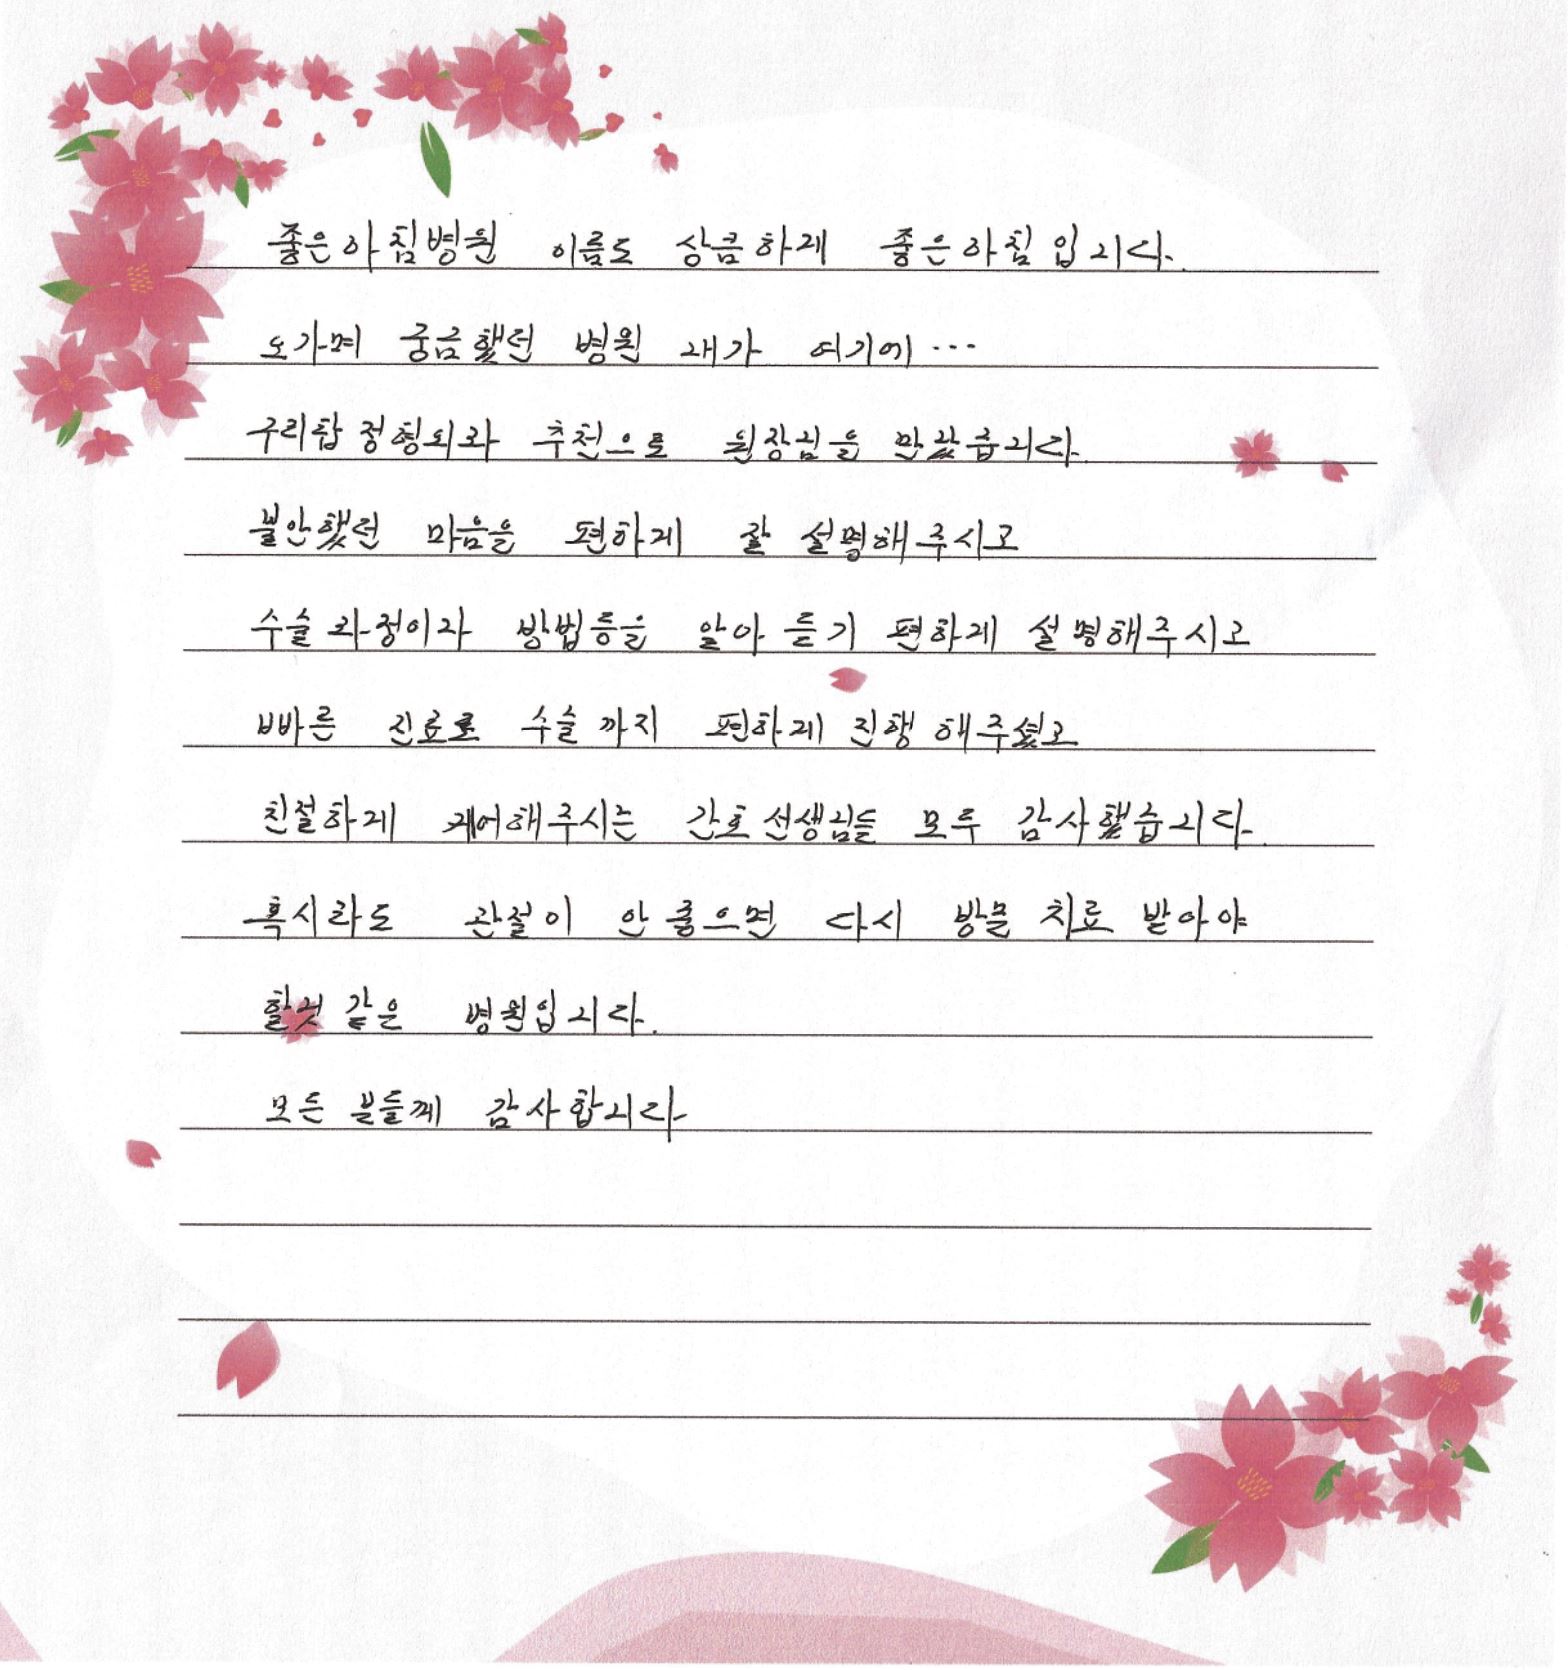 좋은아침병원 이름도 상큼하게 좋은아침입니다.
오가며 궁금했던 병원 내가 여기에…
구리탑정형외과 추천으로 원장님을 만났습니다.
불안했던 마음을 편하게 잘 설명해주시고
수술과정이자 방법등을 알아 듣기 편하게 설명해주시고
빠른 진료로 수술까지 편하게 진행 해주셨고
친절하게 케어해주시는 간호선생님들 모두 감사했습니다.
혹시라도 관절이 안 좋으면 다시 방문 치료 받아야
할것 같은 병원입니다.
모든 분들께 감사합니다